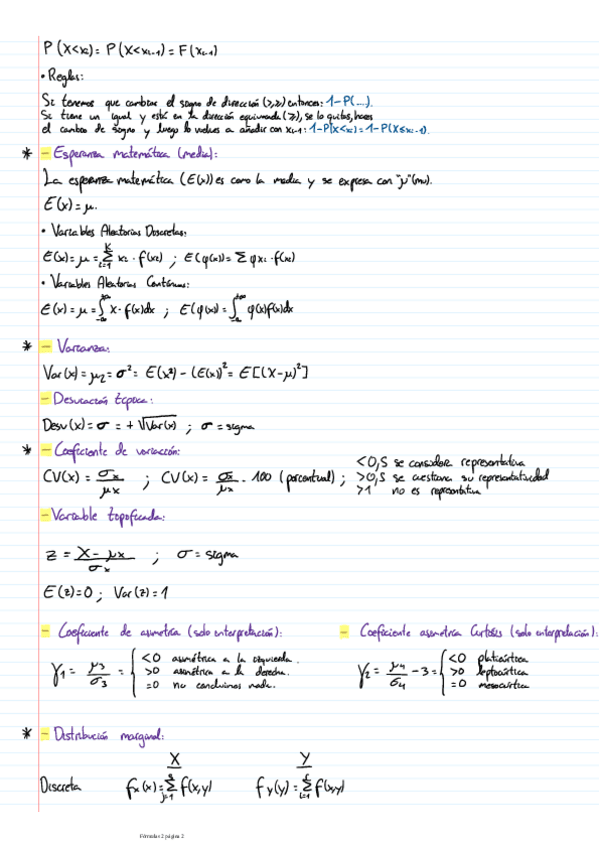 P(X<xᵢ) = P(X≤xᵢ₋₁) = F(xᵢ₋₁)
• Reglas:
Si tenemos que cambiar el signo de dirección (>,≥) entonces: 1-P(....).
Si tiene un igual y está en la dirección equivocada (≥), se lo quitas, haces
el cambio de signo y luego lo vuelves a añadir con xᵢ₋₁: 1-P(X<xᵢ) = 1-P(X≤xᵢ₋₁).
* - Esperanza matemática (media):
La esperanza matemática (E(x)) es como la media y se expresa con "μ" (mu).
E(x) = μ.
• Variables Aleatorias Discretas:
E(x) = μ = Σᵢ₌₁ᵏ xᵢ · f(xᵢ) ; E(φ(x)) = Σ φxᵢ · f(xᵢ)
• Variables Aleatorias Continuas:
E(x) = μ = ∫₋∞⁺∞ x · f(x)dx ; E(φ(x)) = ∫₋∞⁺∞ φ(x)f(x)dx
* - Varianza:
Var(x) = μ₂ = σ² = E(x²) - (E(x))² = E[(X-μ)²]
- Desviación típica:
Desv(x) = σ = +√Var(x) ; σ = sigma
* - Coeficiente de variación:
CV(x) = σx/μx ; CV(x) = σx/μx · 100 (porcentual) ;
<0,5 se considera representativa
>0,5 se cuestiona su representatividad
>1 no es representativa
- Variable tipificada:
z = (X-μx)/σx ; σ = sigma
E(z)=0 ; Var(z)=1
- Coeficiente de asimetría (solo interpretación):
γ₁ = μ₃/σ₃ =
<0 asimétrica a la izquierda.
>0 asimétrica a la derecha.
=0 no concluimos nada.
- Coeficiente asimetría Curtosis (solo interpretación):
γ₂ = μ₄/σ₄ - 3 =
<0 platicúrtica
>0 leptocúrtica
=0 mesocúrtica
* - Distribución marginal:
X Y
Discreta fx(x) = Σⱼ₌₁ˢ f(x,y) fy(y) = Σᵢ₌₁ʳ f(x,y)
Fórmulas 2 página 2